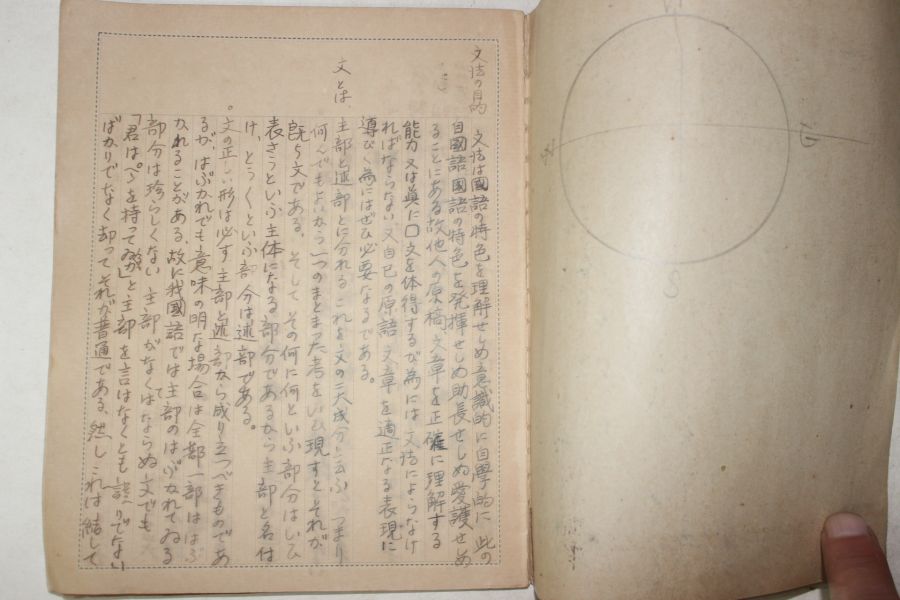 文法の目的
文法は國語の特色を理解せしめ意識的に自學的に此の
自國語國語の特色を発揮せしめ助長せしめ愛護せめ
ることにある故他人の原稿文章を正確に理解する
能力又は眞に口文を体得するび為には文法によらなけ
ればならない又自己の原語文章を適正なる表現に
導びく為にはぜひ必要なるである。
文とは
主部と述部とに分れるこれを文の二大成分と云ふ つまり
何んでもよいから一つのまとまった考をいひ現すとそれが
既ち文である、そしてその何に何といふ部分はいひ
表さうといふ主体になる部分であるから主部と名付
け、とうくといふ部分は述部である。
。文の正しい形は必ず主部と述部から成り立つべきものであ
るが、はぶかれても意味の明な場合は全部一部ははぶ
かれることがある、故に我國語では主部のはぶかれてゐる
部分は珍らしくない 主部がなくはならぬ文でも
「君はペンを持って と主部を言はなくとも誤りでない
ばかりでなく却ってそれが普通である、然しこれは結して
N
S